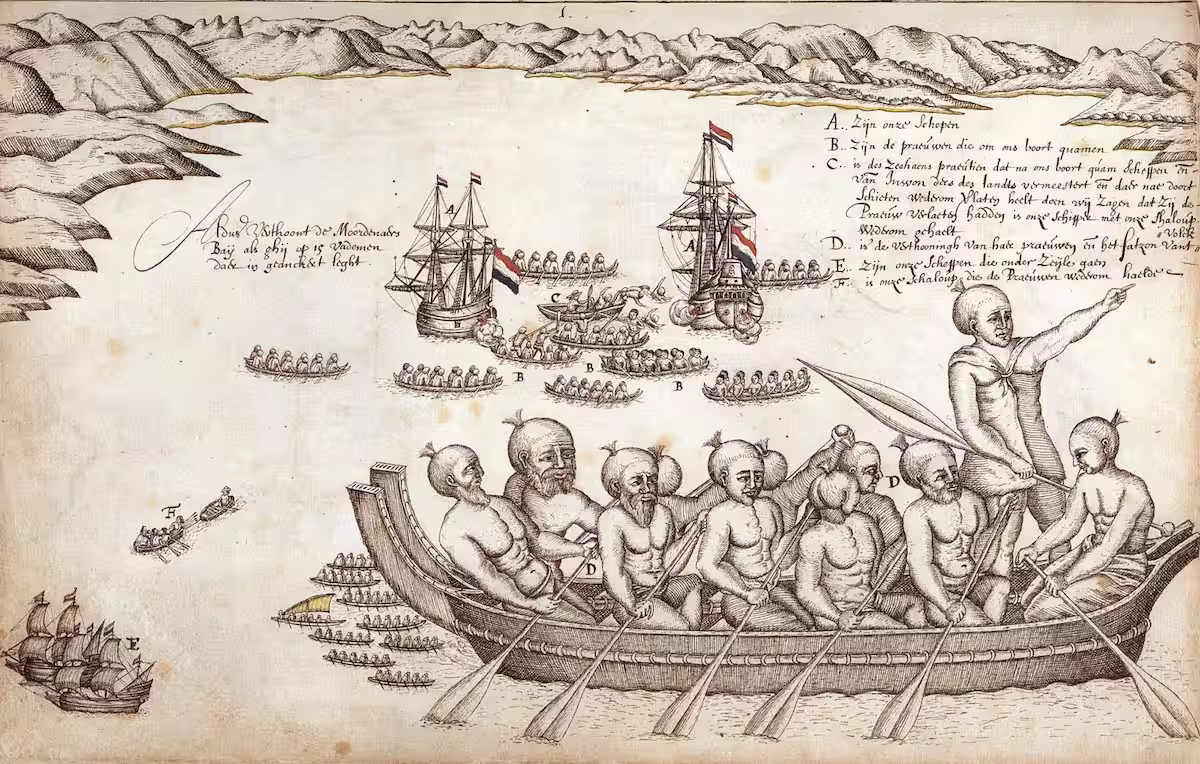 1.
A.. Zijn onze Schepen
B.. Zijn de praeuwen die om ons boort quamen
C.. is des Zeehaens praeutien dat na ons boort quam Scheppen en
van Inwonders des landts vermeestert en daer nae door
Schieten Wederom Vlaten heeft doen wij Zagen dat Zij de
Praeuw Verlaeten hadden is onze Schipper met onze Chaloup
Wederom gehaelt
D.. is de Verthooningh van haer praeuwen en het fatzon Vant Volck
E.. Zijn onze Scheppen die onder Zeijle gaen
F.. is onze Schaloup die de Praeuwen wederom haelde
Aldus Verthoont de Moordenaers
Baij als ghij op 15 Vademen
daer in geanckert leght
A
A
C
B
B
B
D
F
D
E